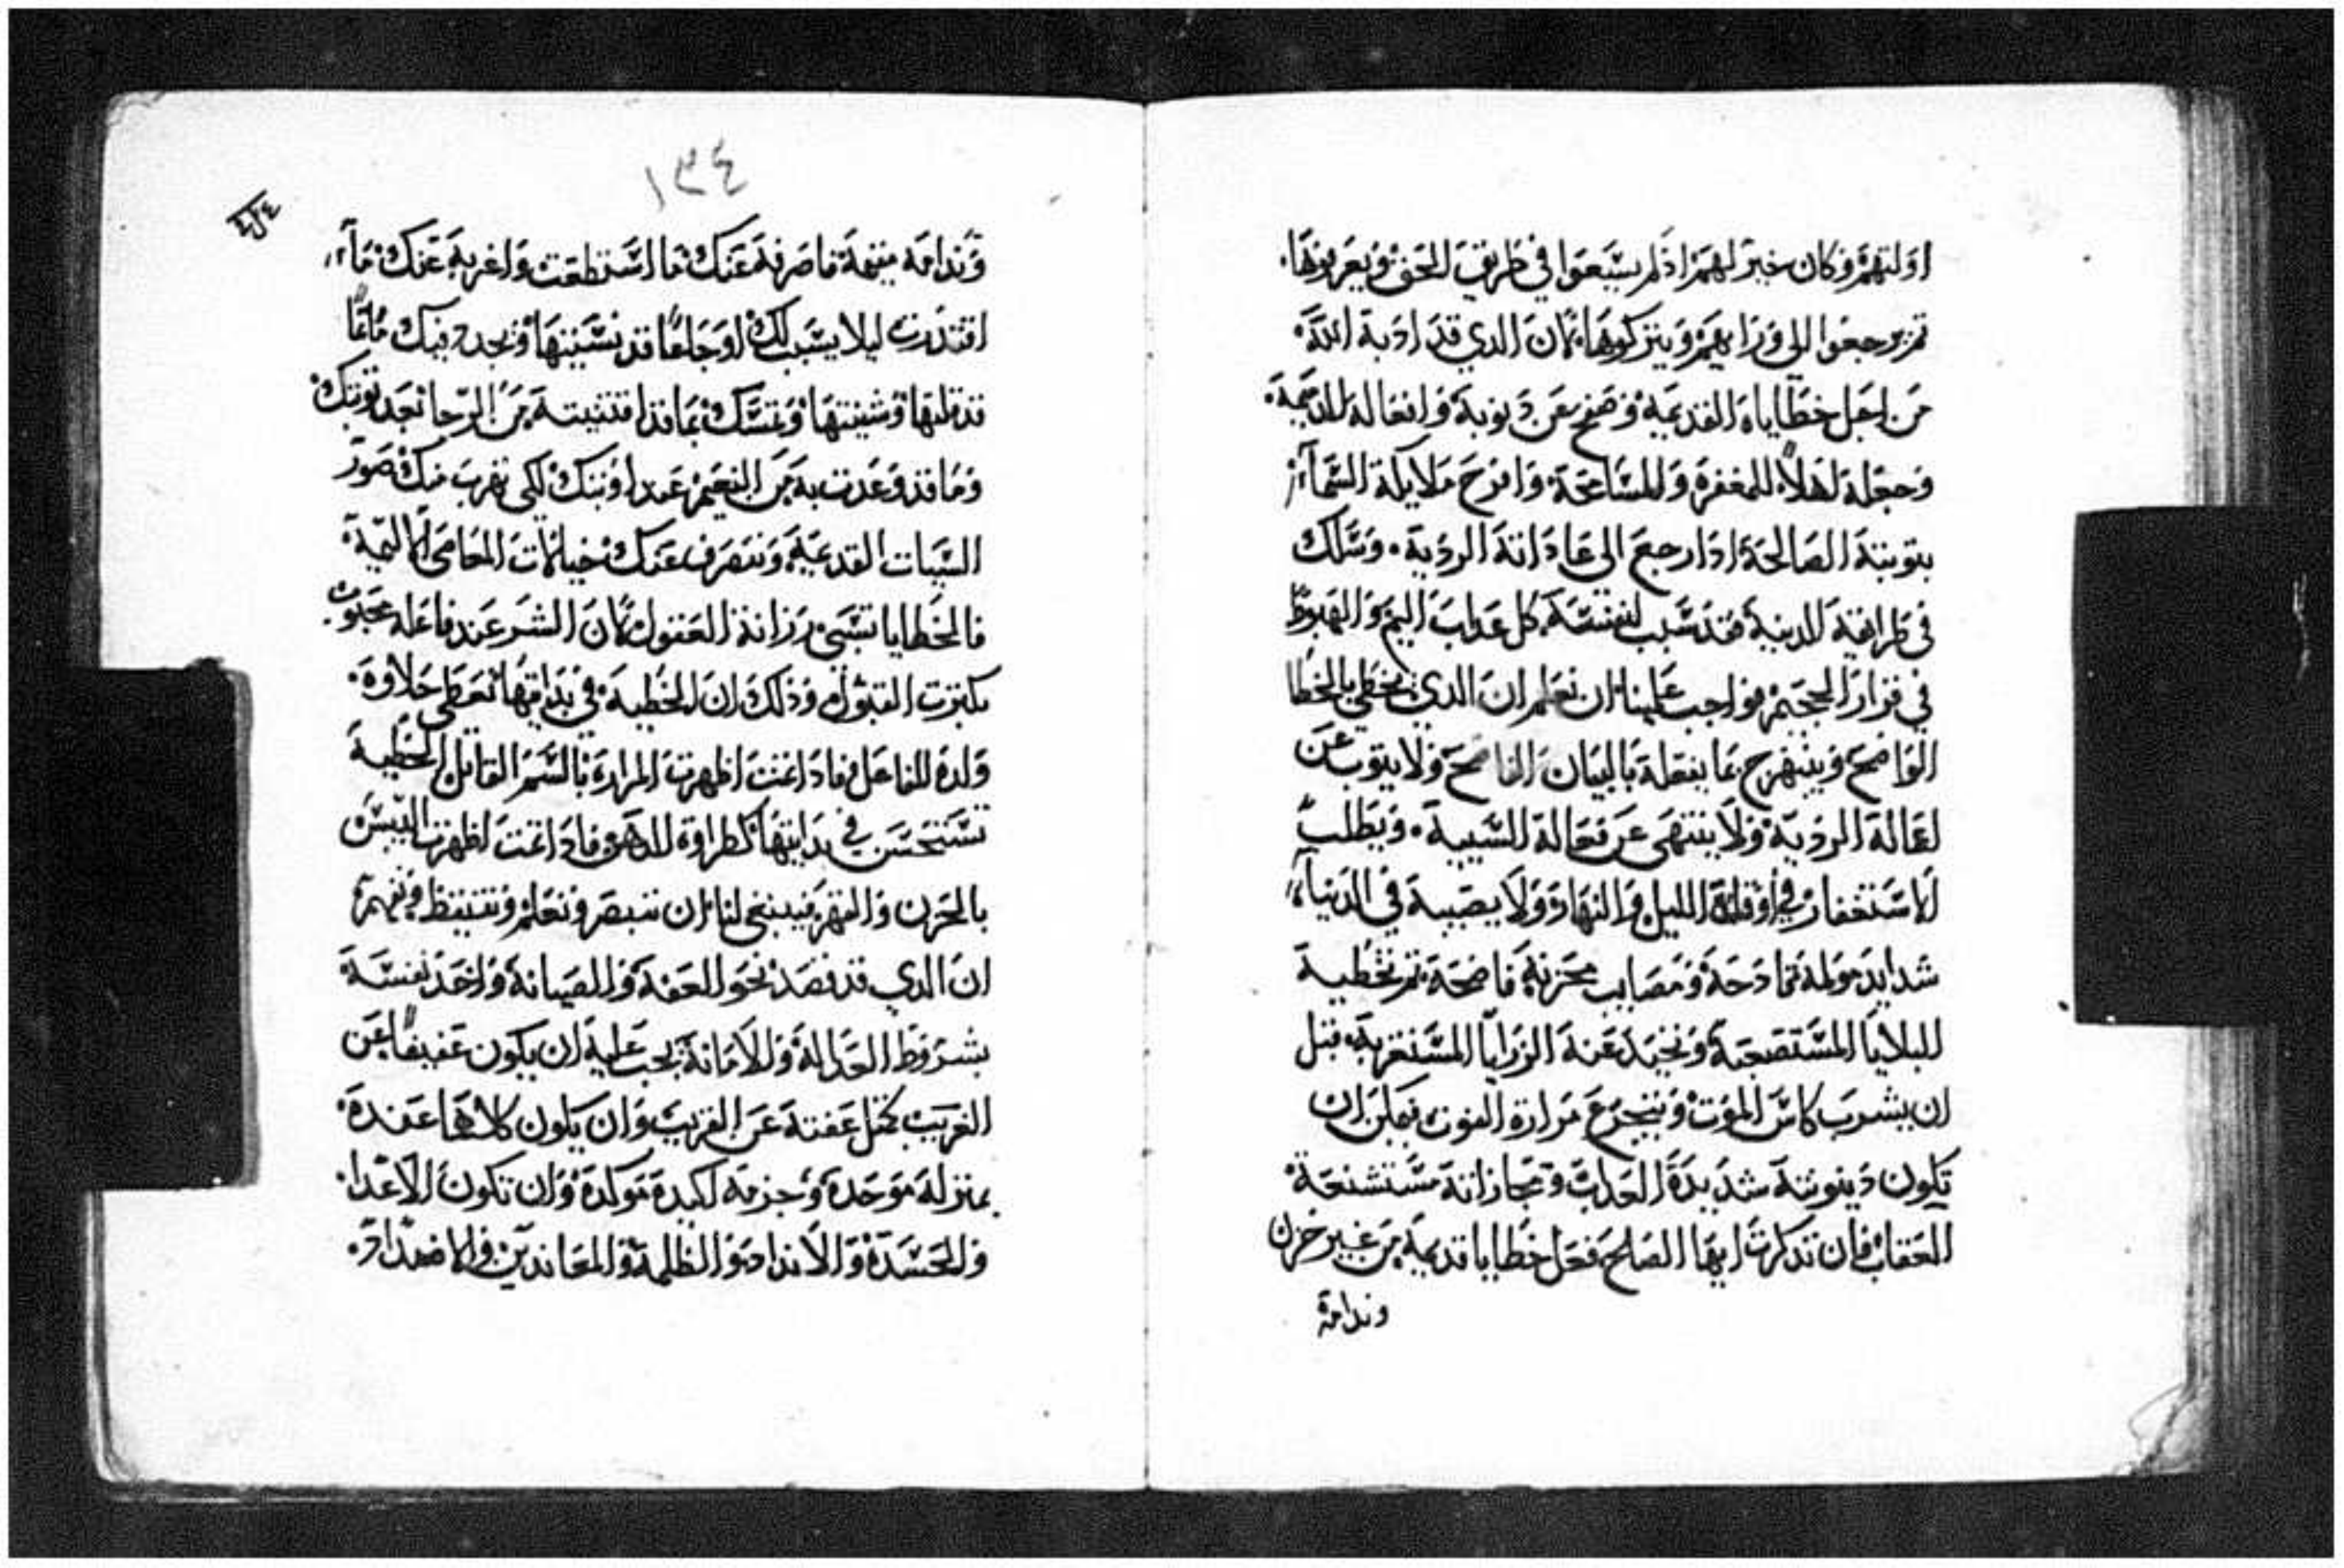 اولتهم وكان خير لهم اذ لم يسعوا في طريق الحق ويعرفونها.
ثم يرجعوا الى ورايهم ويتركوها. لان الدي قد ادبة الله
من اجل خطاياه القديمه وصفح عن دنوبة وافعالة الدميمة.
وجعلة اهلاً للمغفرة والمسامحة. وافرح ملايكة السمآء
بتوبتة الصالحة ادا رجع الى عاداتة الردية. وسلك
في طرايقة الدنية فقد سبب لنفسة كل عداب اليم والهبوط
في قرار الجحيم فواجب علينا ان نعلم ان الدي يخطي بالخطا
الواضح ويبتهج بما يفعلة بالبيان الفاضح ولا يتوب عن
اعمالة الردية ولا ينتهي عن فعالة السيية. ويطلب
الاستغفار في اوقات الليل والنهار ولا يصيبة في الدنيا
شدايد مولمة فادحة ومصايب محزنة فاضحة ثم تخطية
البلايا المستصعبة وتحيد عنة الرزايا المستغربة، قبل
ان يشرب كاس الموت ويتجرع مرارة الفوت فيمكن ان
تكون دينونتة شديدة العداب ومجازاتة مستشنعة
العقاب فان تدكرت ايها الصالح فعل خطايا قديمة من غير حزن
وندامة
١٣٤
وندامة مقيمة فاصرفة عنك ما استطعت واغربة عنك مآ
اقتدرت ليلا يسبب لك اوجاعًا قد نسيتها ويجدد فيك
قد قليتها وشينتها وتمسك بما قد اقتنيتة من الرجا بعد توبتك
وما قد وعدت بة من النعيم عند اوبتك لكي تهرب منك صور
السيات القديمة وتنصرف عنك خيالات المعاصي الاليمة.
فالخطايا تسبي رزانة العقول لان الشر عند فاعلة محبوب
وذلك ان الخطية في بدايتها تعطي حلاوة.
ولدة للفاعل فادا تمت اظهرت المرارة بالسم القاتل الخطية
تستحسن في بدايتها كطراوة الدهر فادا تمت اظهرت اليبس
بالحزن والقهر فينبغي لنا ان نتبصر ونعلم ونتيقظ ونفهم
ان الدي قد قصد نحو العفة والصيانة واخد نفسة
بشروط العدالة والامانة يجب علية ان يكون عفيفًا عن
الغريب كمثل عفتة عن القريب وان يكون كلاهما عندة
بمنزلة موحدة وحزمة اكيدة موكدة وان تكون الاعدا.
والحسدة والانداد والظلمة والمعاندين والاضداد.